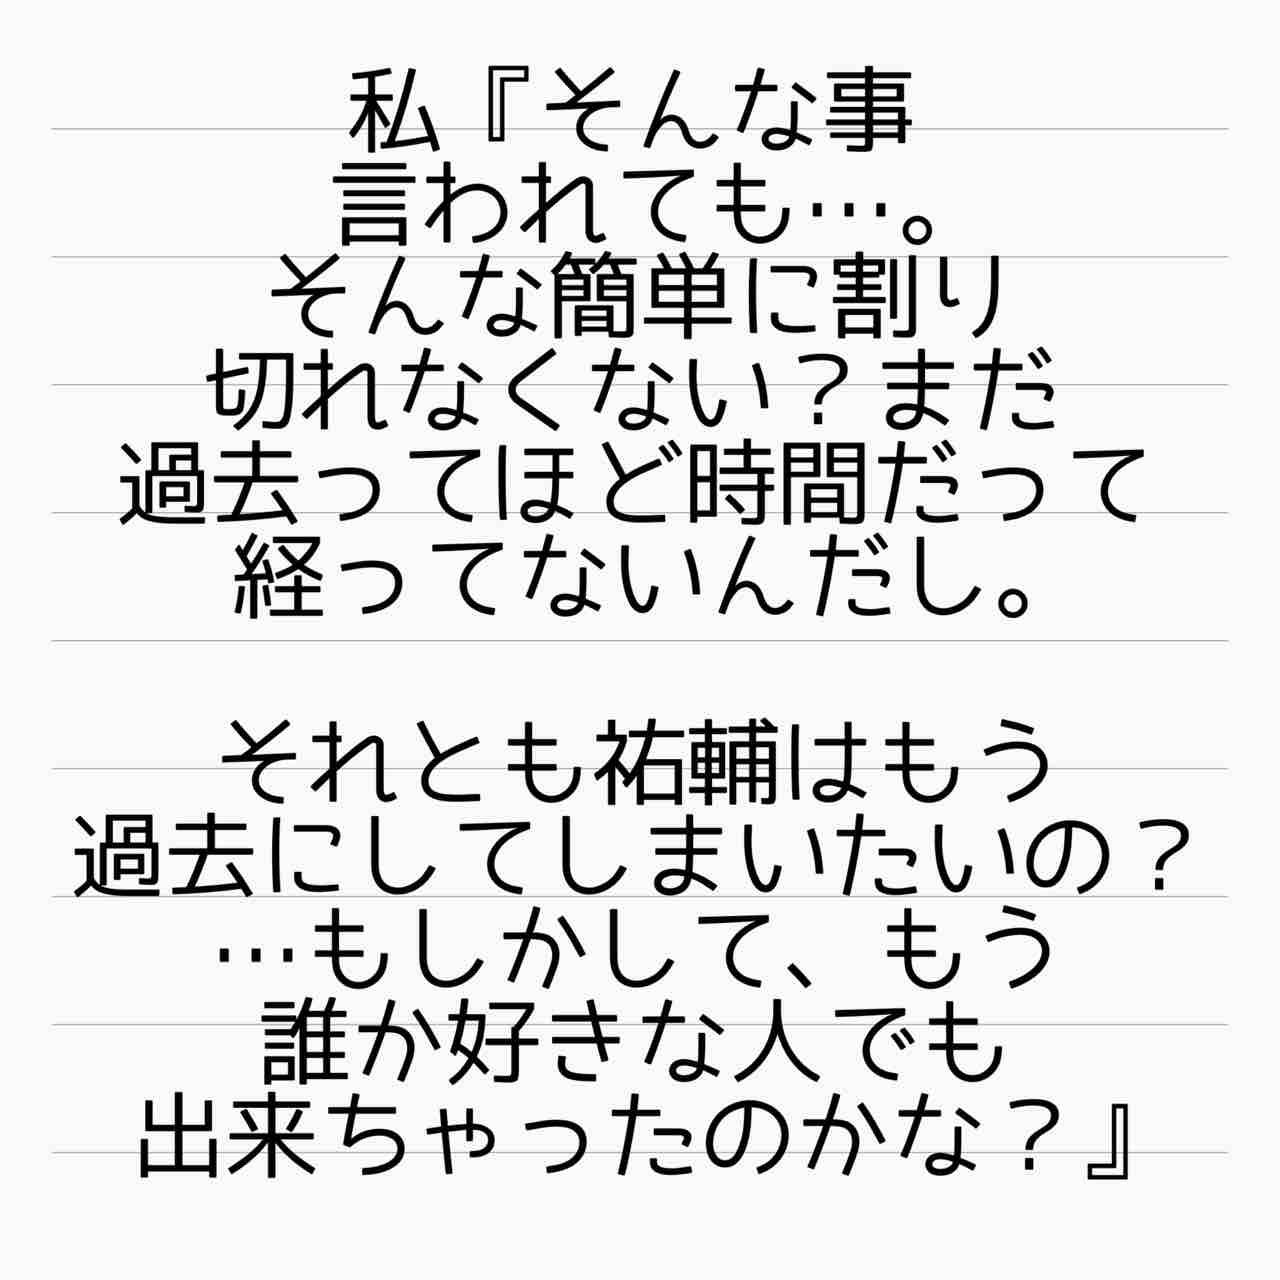 私『そんな事
言われても…。
そんな簡単に割り
切れなくない？まだ
過去ってほど時間だって
経ってないんだし。
それとも祐輔はもう
過去にしてしまいたいの？
…もしかして、もう
誰か好きな人でも
出来ちゃったのかな？』